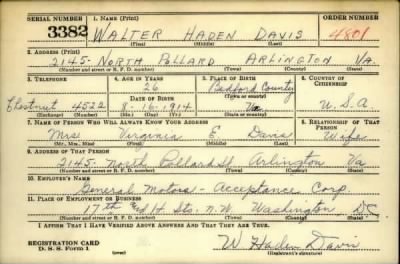 SERIAL NUMBER 1. NAME (Print) ORDER NUMBER
3382 WALTER HADEN DAVIS 4801
(First) (Middle) (Last)
2. ADDRESS (Print)
2145- NORTH POLLARD ARLINGTON VA.
(Number and street or R. F. D. number) (Town) (County) (State)
3. TELEPHONE 4. AGE IN YEARS 5. PLACE OF BIRTH 6. COUNTRY OF CITIZENSHIP
26 Bedford County
(Town or county)
DATE OF BIRTH
Chestnut 4522 8-16-1914 Va U.S.A
(Exchange) (Number) (Mo.) (Day) (Yr.) (State or country)
7. NAME OF PERSON WHO WILL ALWAYS KNOW YOUR ADDRESS 8. RELATIONSHIP OF THAT PERSON
Mrs Virginia E Davis Wife
(Mr., Mrs., Miss) (First) (Middle) (Last)
9. ADDRESS OF THAT PERSON
2145- North Pollard St Arlington Va
(Number and street or R. F. D. number) (Town) (County) (State)
10. EMPLOYER'S NAME
General Motors - Acceptance Corp.
11. PLACE OF EMPLOYMENT OR BUSINESS
17th and H Sts. N.W. Washington DC
(Number and street or R. F. D. number) (Town) (County) (State)
I AFFIRM THAT I HAVE VERIFIED ABOVE ANSWERS AND THAT THEY ARE TRUE.
REGISTRATION CARD
D. S. S. Form 1
W. Haden Davis
(Registrant's signature)